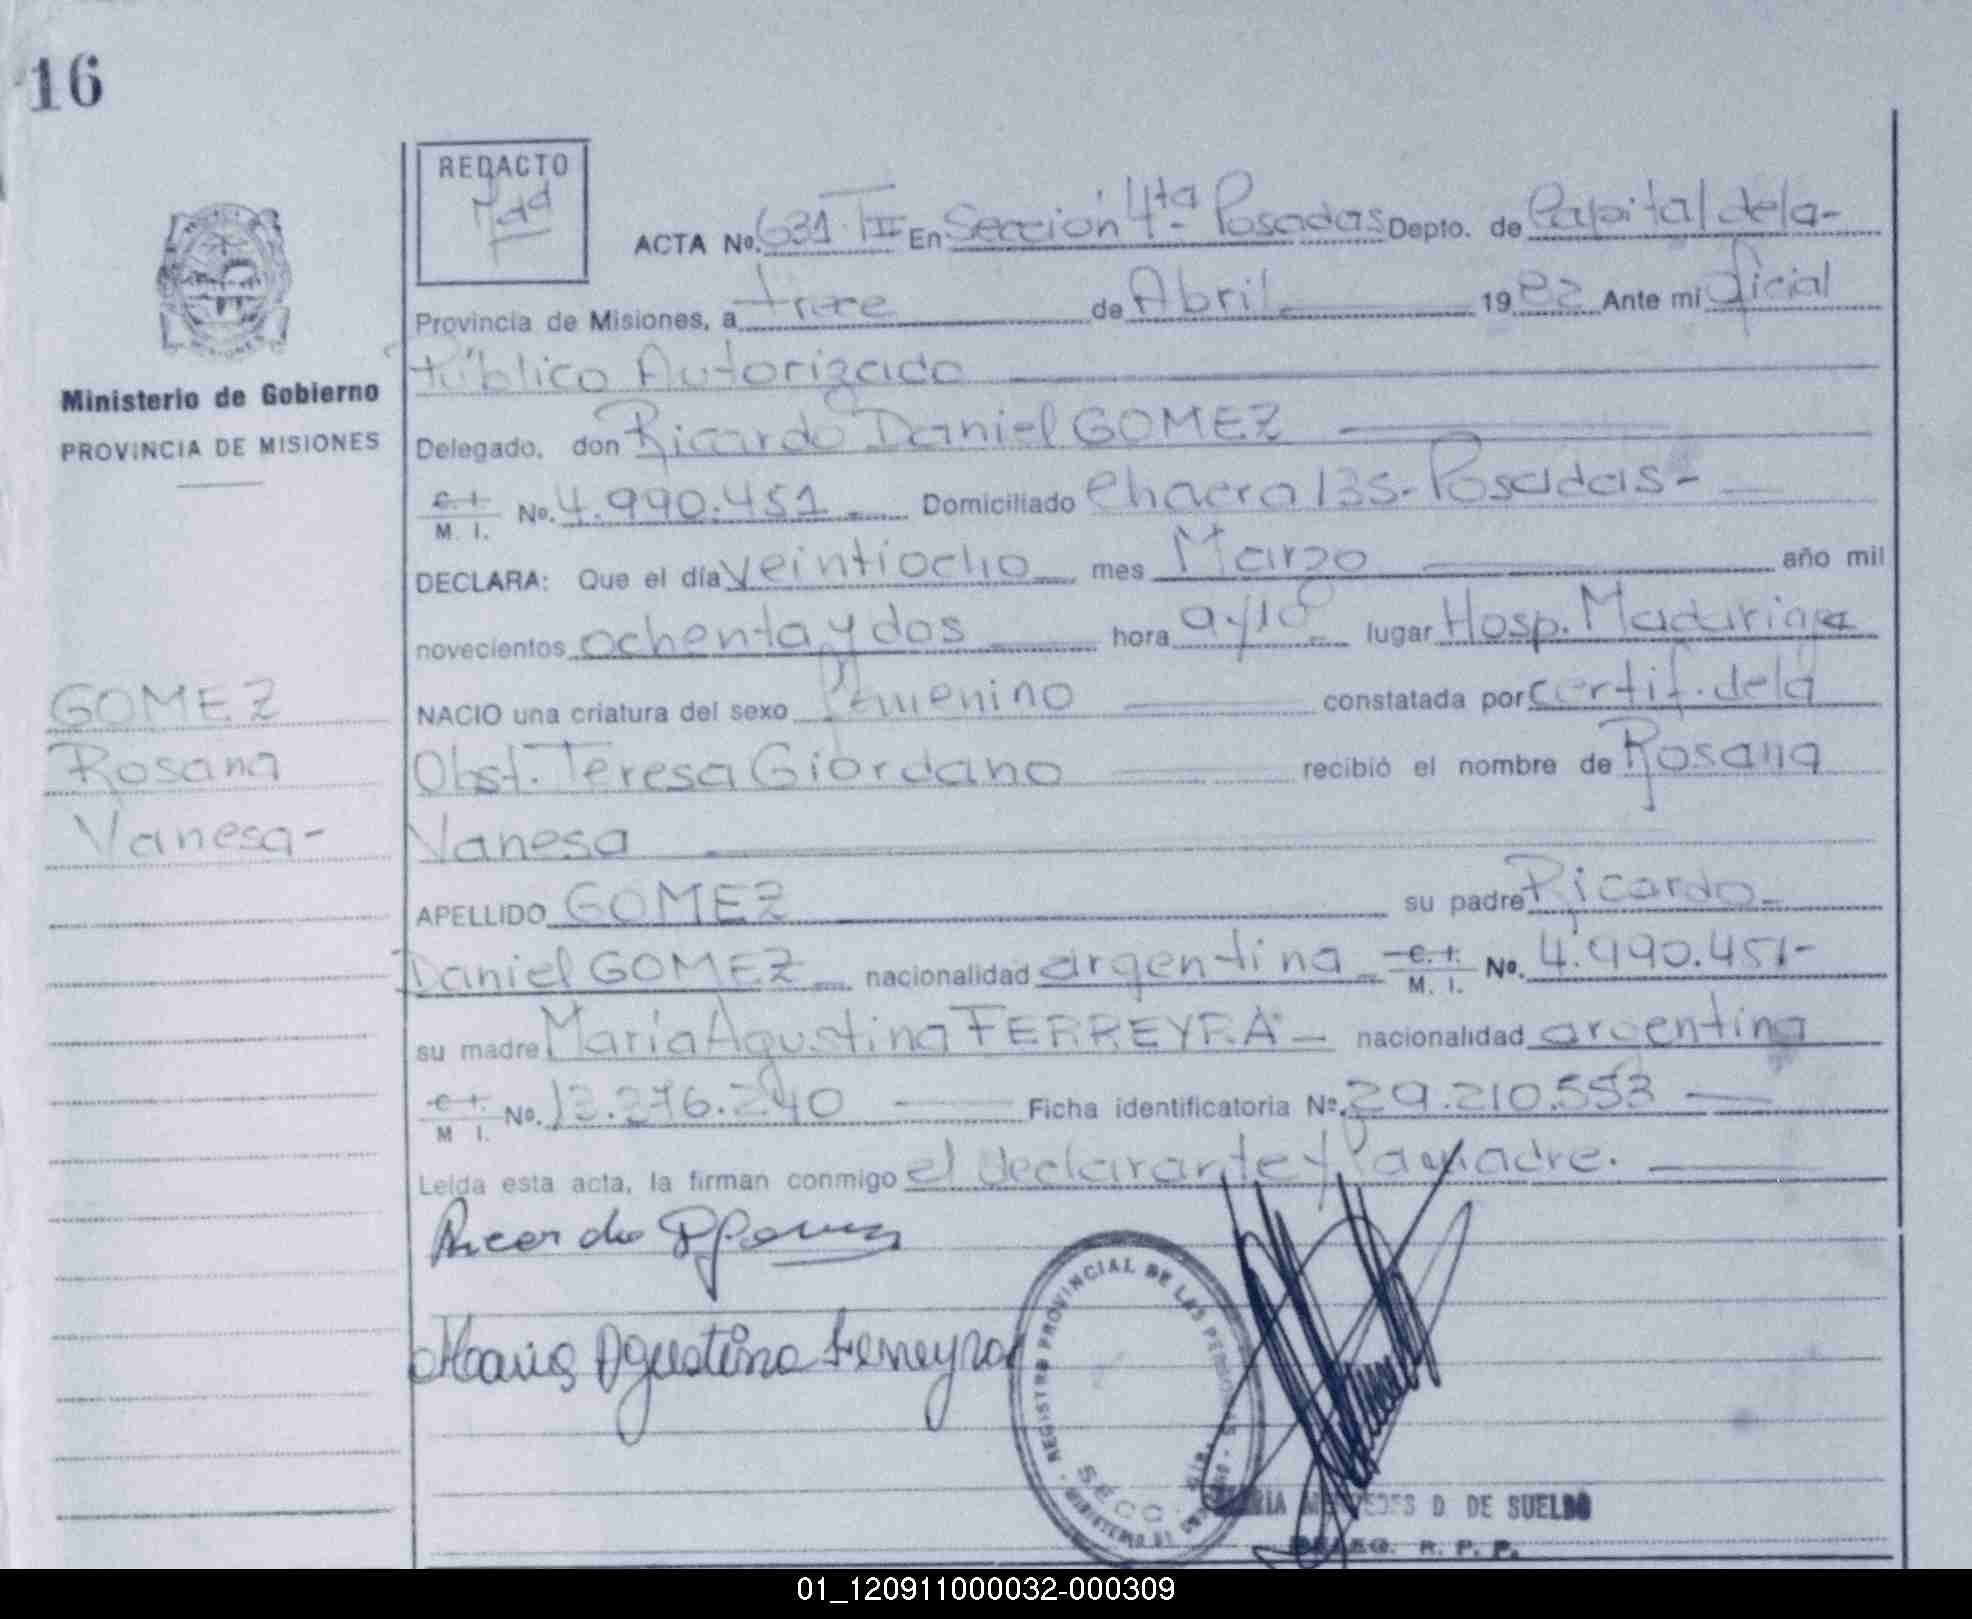 16
REDACTO
ACTA No. 631 TII En Sección 4ta Posadas Depto. de Capital de la-
Provincia de Misiones, a trece de Abril 1982 Ante mi Oficial
Público Autorizado
Ministerio de Gobierno
PROVINCIA DE MISIONES
Delegado, don Ricardo Daniel GOMEZ
C. I. M. I. No. 4.990.451 Domiciliado Chacra 135- Posadas-
DECLARA: Que el día veintiocho mes Marzo año mil
novecientos ochenta y dos hora 9y10 lugar Hosp. Madariaga
NACIO una criatura del sexo femenino constatada por certif. de la
Obst. Teresa Giordano recibió el nombre de Rosana
Vanesa
GOMEZ
Rosana
Vanesa-
APELLIDO GOMEZ su padre Ricardo-
Daniel GOMEZ nacionalidad argentina C. I. M. I. No. 4.990.451-
su madre María Agustina FERREYRA- nacionalidad argentina
C. I. M I. No. 13.276.240 Ficha identificatoria Nº. 29.210.553
Leída esta acta, la firman conmigo el declarante y la madre.
Ricardo D Gomez
Maria Agustina Ferreyra
REGISTRO PROVINCIAL DE LAS PERSONAS
SECC
MARIA MERCEDES D. DE SUELDO
DELEG. R. P. P.
01_120911000032-000309